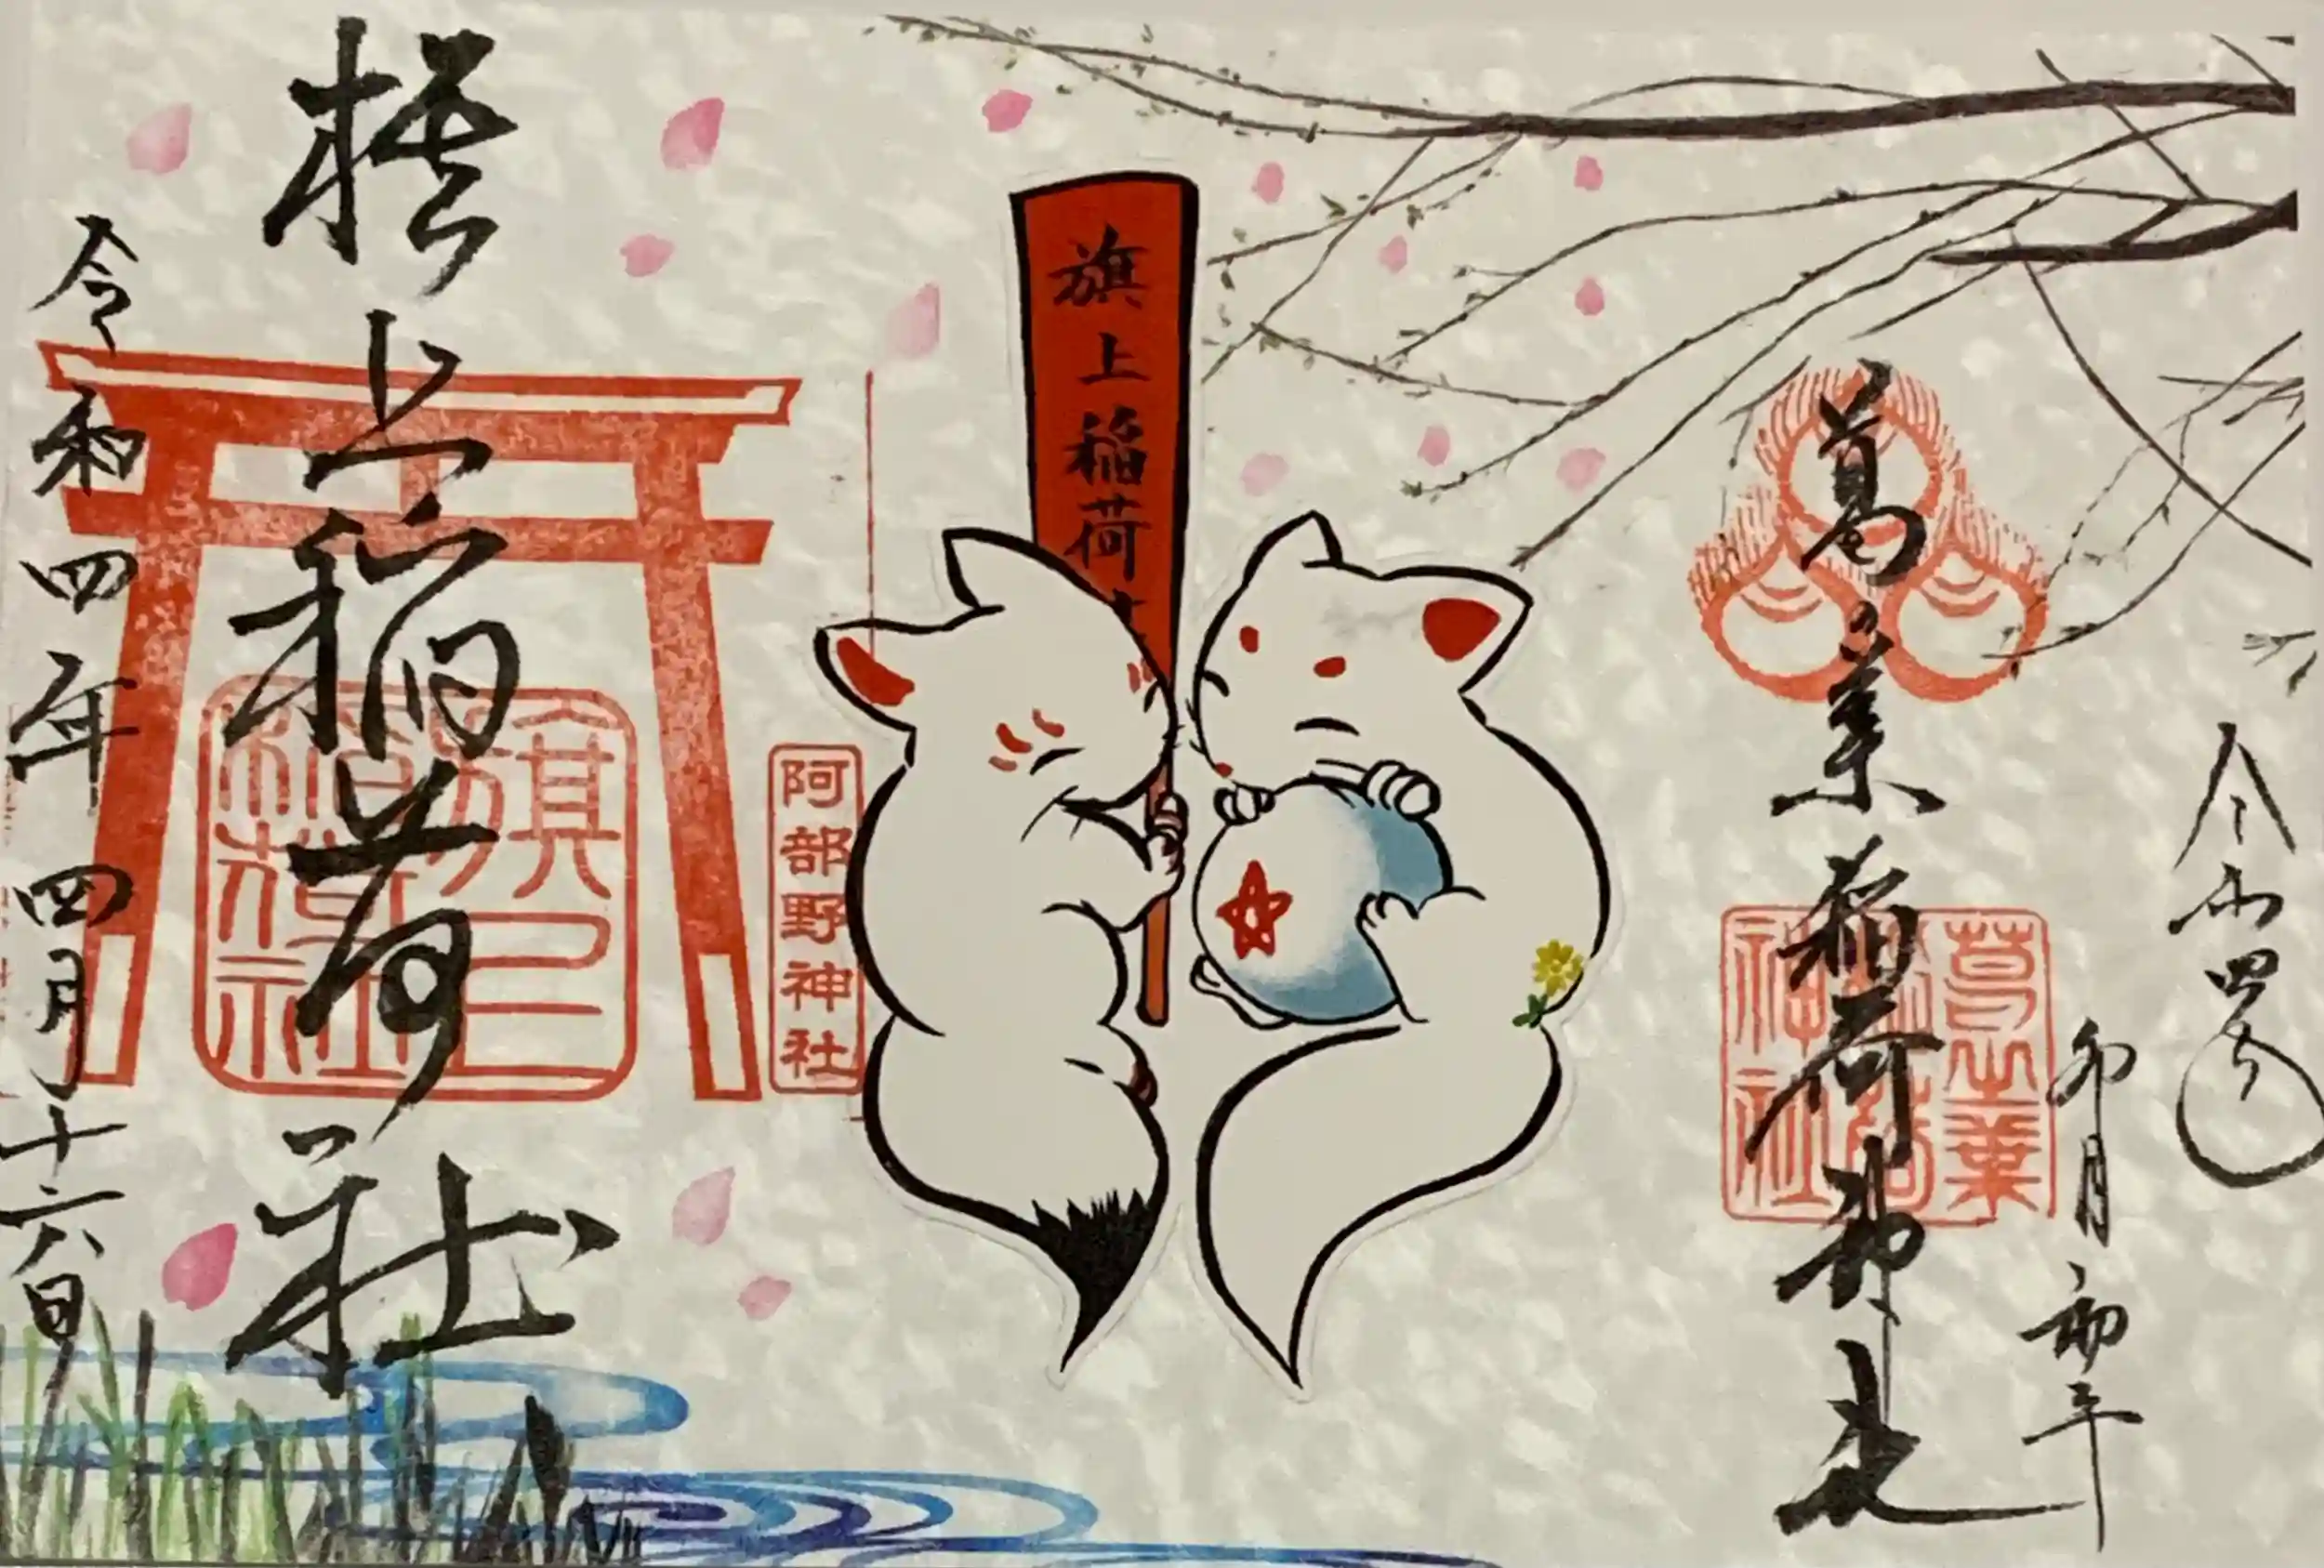 令和四年
卯月初午
葛之葉稲荷神社
葛之葉稲荷神社
旗上稲荷
阿部野神社
旗上稲荷社
旗上稲荷社
令和四年四月十六日